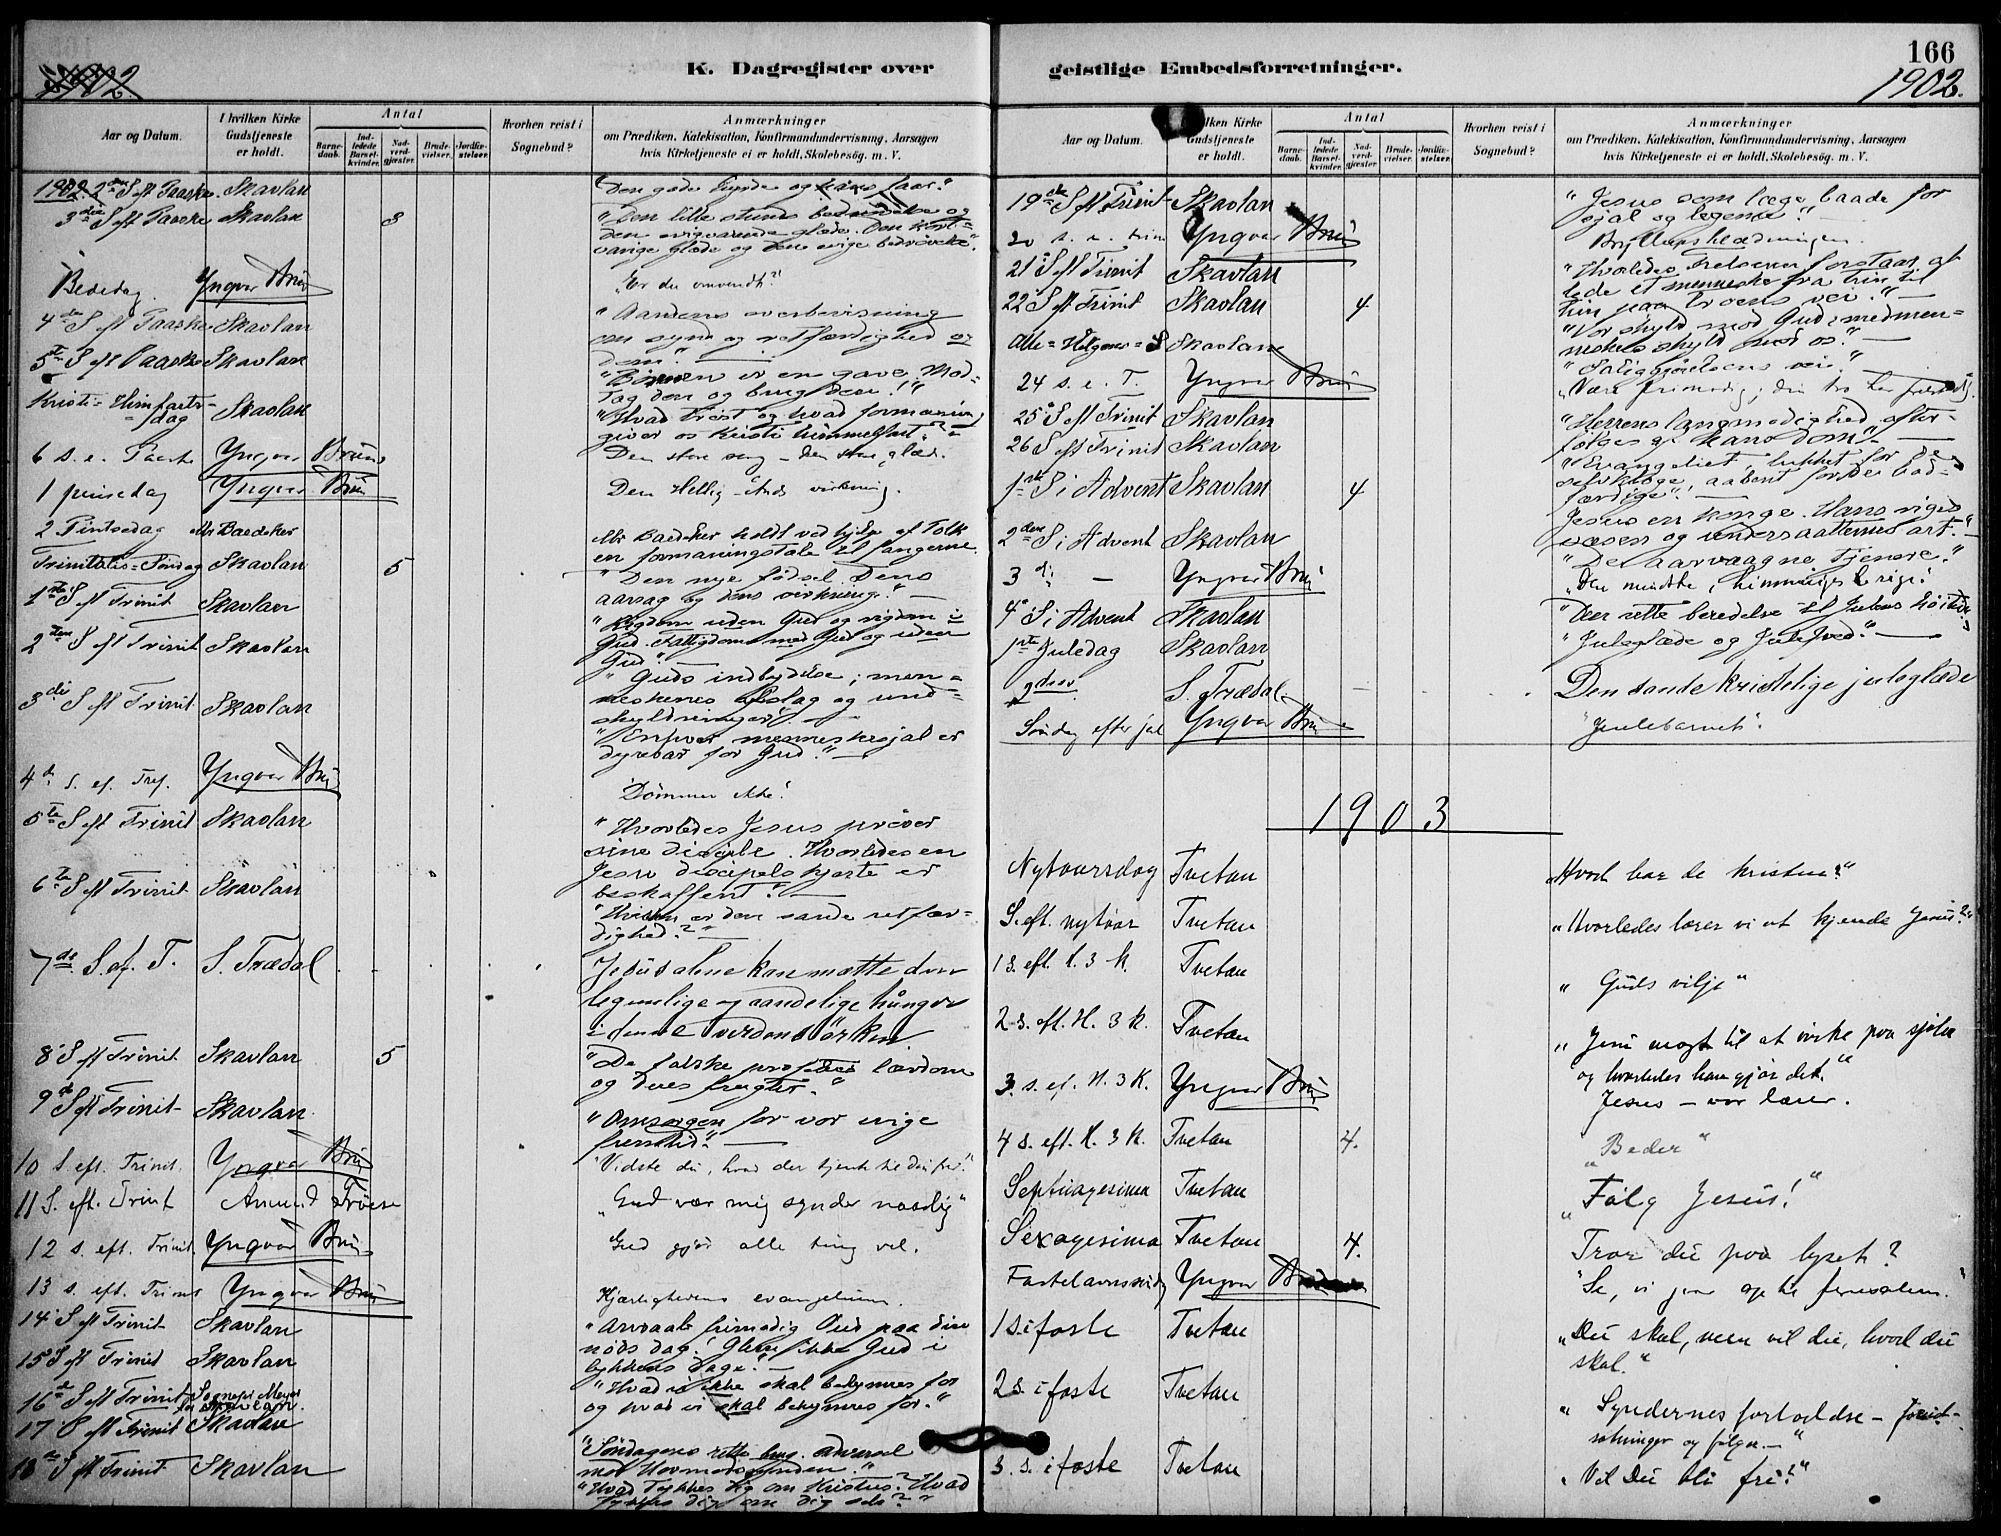 K. Dagregister over
1902.
Aar og Datum.
I hvilken Kirke Gudstjeneste er holdt.
Antal
Barnedaab.
Indledede Barselkvinder.
Nadverdgjester.
Brudevielser.
Jordfæstelser.
Hvorhen reist i Sognebud?
Anmærkninger
om Prædiken, Katekisation, Konfirmandundervisning, Aarsagen
hvis Kirketjeneste ei er holdt, Skolebesög. m. V.
1902. 2den S eft Paaske. Skavlan "Den gode hyrde og hans faar."
3die S eft Paaske Skavlan 3 "Den lille stunds bedrøvelse og
den evigvarende glæde. Den kort=
varige glæde og den evige bedrøvelse."
Bededag. Yngvar Brun "Er du omvendt?"
4de S eft Paaske Skavlan "Aandens overbevisning
om synd og retfærdighed og
dom."
5te S eft Paaske Skavlan "Bønnen er en gave. Mod=
tag den og brug den!"
Kristi=Himfarts=
dag Skavlan "Hvad trøst og hvad formaning
giver os Kristi himmelfart?"
6 s. e. Paaske Yngvar Brun Den store sorg – den store glæde.
1 pinsedag Yngvar Brun Den Hellig-Ånds virkning.
2 Pintsedag Mr Baedeker Mr Baedeker holdt ved hjelp af Tolk
en formaningstale til fangerne.
Trinitatis=Søndag Skavlan 5 "Den nye fødsel. Dens
aarsag og dens virkninger."
1ste S eft Trinit Skavlan "Rigdom uden Gud og rigdom i
Gud. Fattigdom med Gud og uden
Gud."
2den S eft Trinit Skavlan "Guds indbydelse; men=
neskenes afslag og und=
skyldninger."
3die S eft Trinit. Skavlan "Enhver menneskesjæl er
dyrebar for Gud."
4de s. ef. Tref. Yngvar Brun "Dømmer ikke."
5te S eft Trinit Skavlan "Hvorledes Jesus prøver
sine disciple. Hvorledes en
Jesu discipels hjerte er
beskaffent?"
6te S eft Trinit. Skavlan "Hvilken er den sande retfær=
dighed?"
7de S. ef. T. S. Trædal Jesus alene kan mætte den
legemlige og aandelige hunger
i denne verdens ørken
8 S eft Trinit. Skavlan 5 "De falske profeters lærdom
og deres frugter."
9de S eft Trinit- Skavlan. "Omsorgen for vor evige
fremtid."
10 S eft. Trinit. Yngvar Brun "Vidste du, hvad der tjente til din fred."
11 S. eft. Trinit Amund "Gud vær mig synder naadig"
12 s. eft. Trinit. Yngvar Brun Gud gjør alle ting vel.
13 s. eft. Trinit Yngvar Brun Kjærlighedens evangelium.
14 S eft Trinit- Skavlan "Anraab frimodig Gud paa din
nøds dag! Glem ikke Gud i
lykkens dage."
15 S eft Trinit Skavlan "Hvad vi ikke skal bekymres for
og hvad vi skal bekymres for."
16de S eft Trinit Sognepr. Meyer
for Skavlan.
17 S eft Trinit Skavlan "Søndagens rette brug. Advarsel
mod Hovmodssynden."
18de S eft Trinit- Skavlan "Hvad tykkes dig om Kristus? Hvad
tykkes dig om dig selv?"
geistlige Embedsforretninger.
166
1902.
Aar og Datum.
ilken Kirke Gudstjeneste er holdt.
Antal
Barnedaab.
Indledede Barselkvinder.
Nadverdgjester.
Brudevielser.
Jordfæstelser.
Hvorhen reist i Sognebud?
Anmærkninger
om Prædiken, Katekisation, Konfirmandundervisning, Aarsagen
hvis Kirketjeneste ei er holdt, Skolebesög. m. V.
19de S eft Trinit- Skavlan "Jesus som læge baade for
sjæl og legeme."
20 s. e. trin Yngvar Brun Bryllupsklædningen.
21 S eft Trinit Skavlan "Hvorledes Frelseren forstaar at
lede et menneske fra trin til
trin paa troens vei."
22 S eft Trinit Skavlan 4 "Vor skyld mod Gud; medmen=
neskets skyld mod os."
Alle=Helgenes=S Skavlan "Saliggjørelsens vei."
24 s. e. T. Yngvar Brun "Vær frimodig; din tro har frelst dig."
25 S eft Trinit Skavlan "Herrens langmodighed efter=
følges af hans dom."
26 S eft Trinit Skavlan "Evangeliet, lukket for de
selvkloge, aabent for de bod=
færdige."
1ste S i Advent Skavlan 4 Jesus en konge. Hans riges
væsen og undersaatternes art."
2den S i Advent Skavlan "De aarvaagne tjenere."
3di – Yngvar Brun "Den mindste i himmeriges rige."
4 S i Advent Skavlan "Den rette beredelse til Julens høitid."
1ste Juledag Skavlan "Juleglæde og Julefred."
2den S. Trædal Den sande kristelige juleglæde
Søndag efter jul Yngvar Brun "Julebarnet."
1903
Nytaarsdag Tvetan "Hvad har de kristne?"
S. eft. nytaar Tvetan "Hvorledes lærer vi at kjende Jesus?"
1 S. eft. H. 3 K. Tvetan "Guds vilje"
2 S. eft. H. 3 K. Tvetan "Jesu magt til at virke paa sjelen
og hvorledes han gjør det."
3. s. ef. H. 3 K. Yngvar Brun Jesus – vor lærer.
4 s. eft. H. 3 K. Tvetan 4. "Beder"
Septuagesima Tvetan "Følg Jesus!"
Sexagesima Tvetan 4. Tror du paa lyset?
Fastelavnssøndag Yngvar "Se, vi gaar op til Jerusalem."
1 S. i faste Tvetan "Du skal, men vil du, hvad du
skal."
2 s. i faste Tvetan "Syndernes forladelse – forud-
sætninger og følger."
3. s. i faste Tvetan "Vil Du bli fri?"